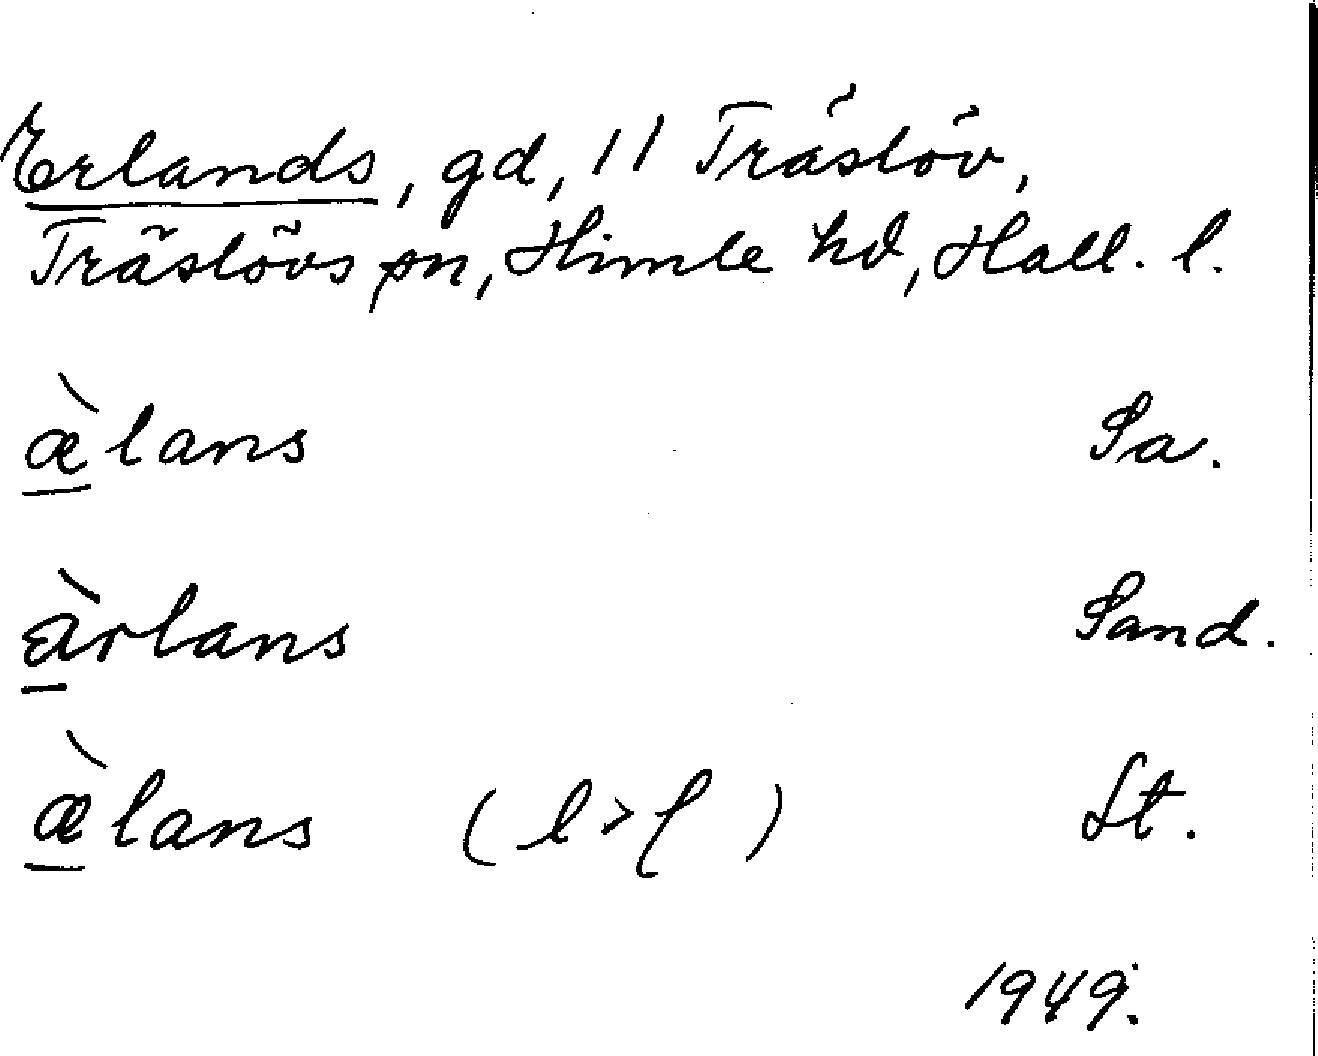 Erlands, gd, 11 Träslöv,
Träslövs sn, Himle hd, Hall. l.
æ̀lans Sa.
æ̀rlans Sand.
æ̀lans (l > ɭ) St.
1949.